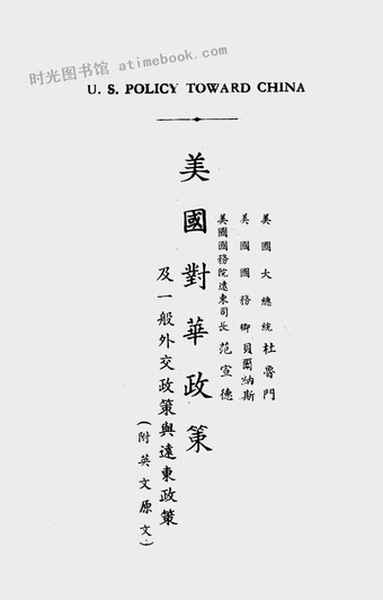 时光图书馆 atimebook.com
U. S. POLICY TOWARD CHINA
美國大總統 杜魯門
美國國務卿 貝爾納斯
美國國務院遠東司長 范宣德
美國對華政策
及一般外交政策與遠東政策
(附英文原文)